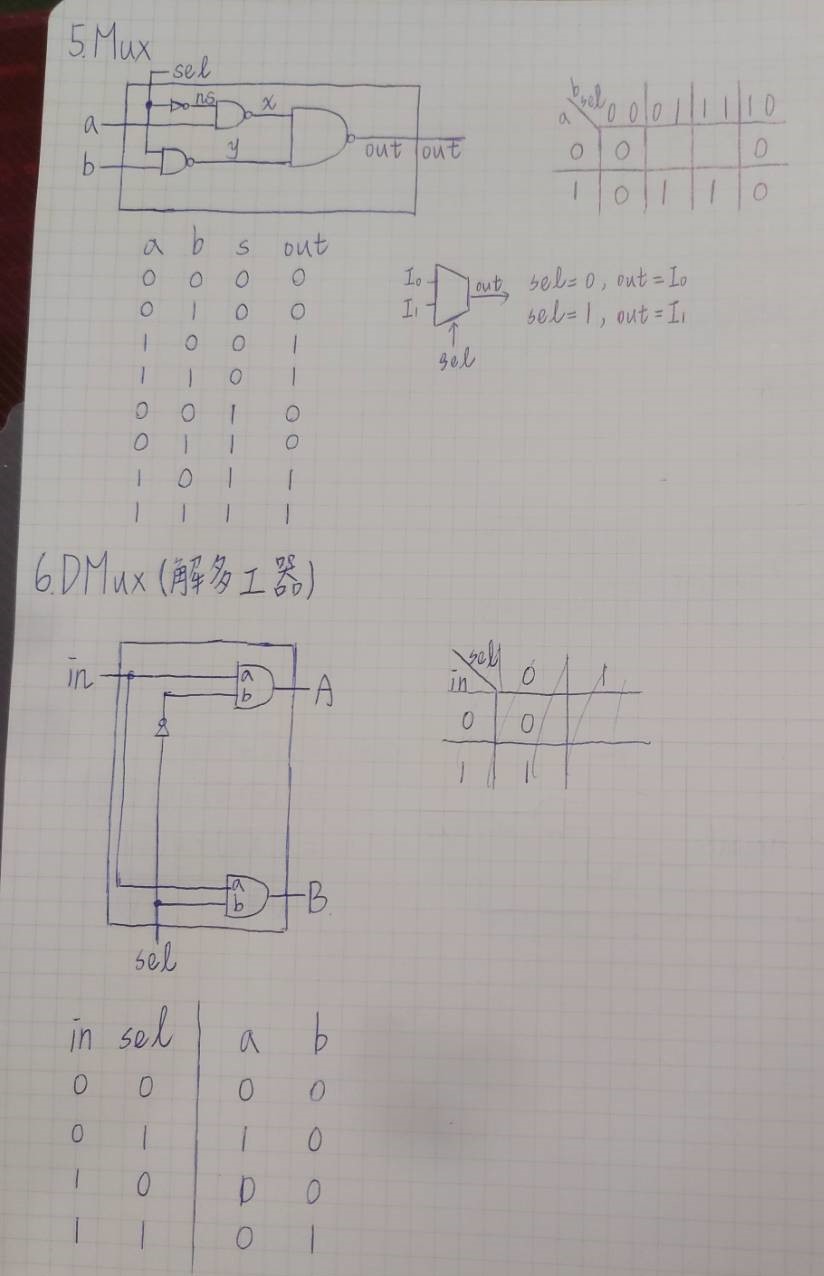 5.Mux
sel
ns
x
a
y
out out
b
b sel 0 0 0 1 1 1 1 0
a
0 0 0
1 0 1 1 0
a b s out
0 0 0 0
0 1 0 0
1 0 0 1
1 1 0 1
0 0 1 0
0 1 1 0
1 0 1 1
1 1 1 1
I₀ out sel=0, out=I₀
I₁ sel=1, out=I₁
sel
6.DMux(解多工器)
in a A
b
a B
b
sel
sel 0 1
in
0 0
1 1
in sel a b
0 0 0 0
0 1 1 0
1 0 0 0
1 1 0 1